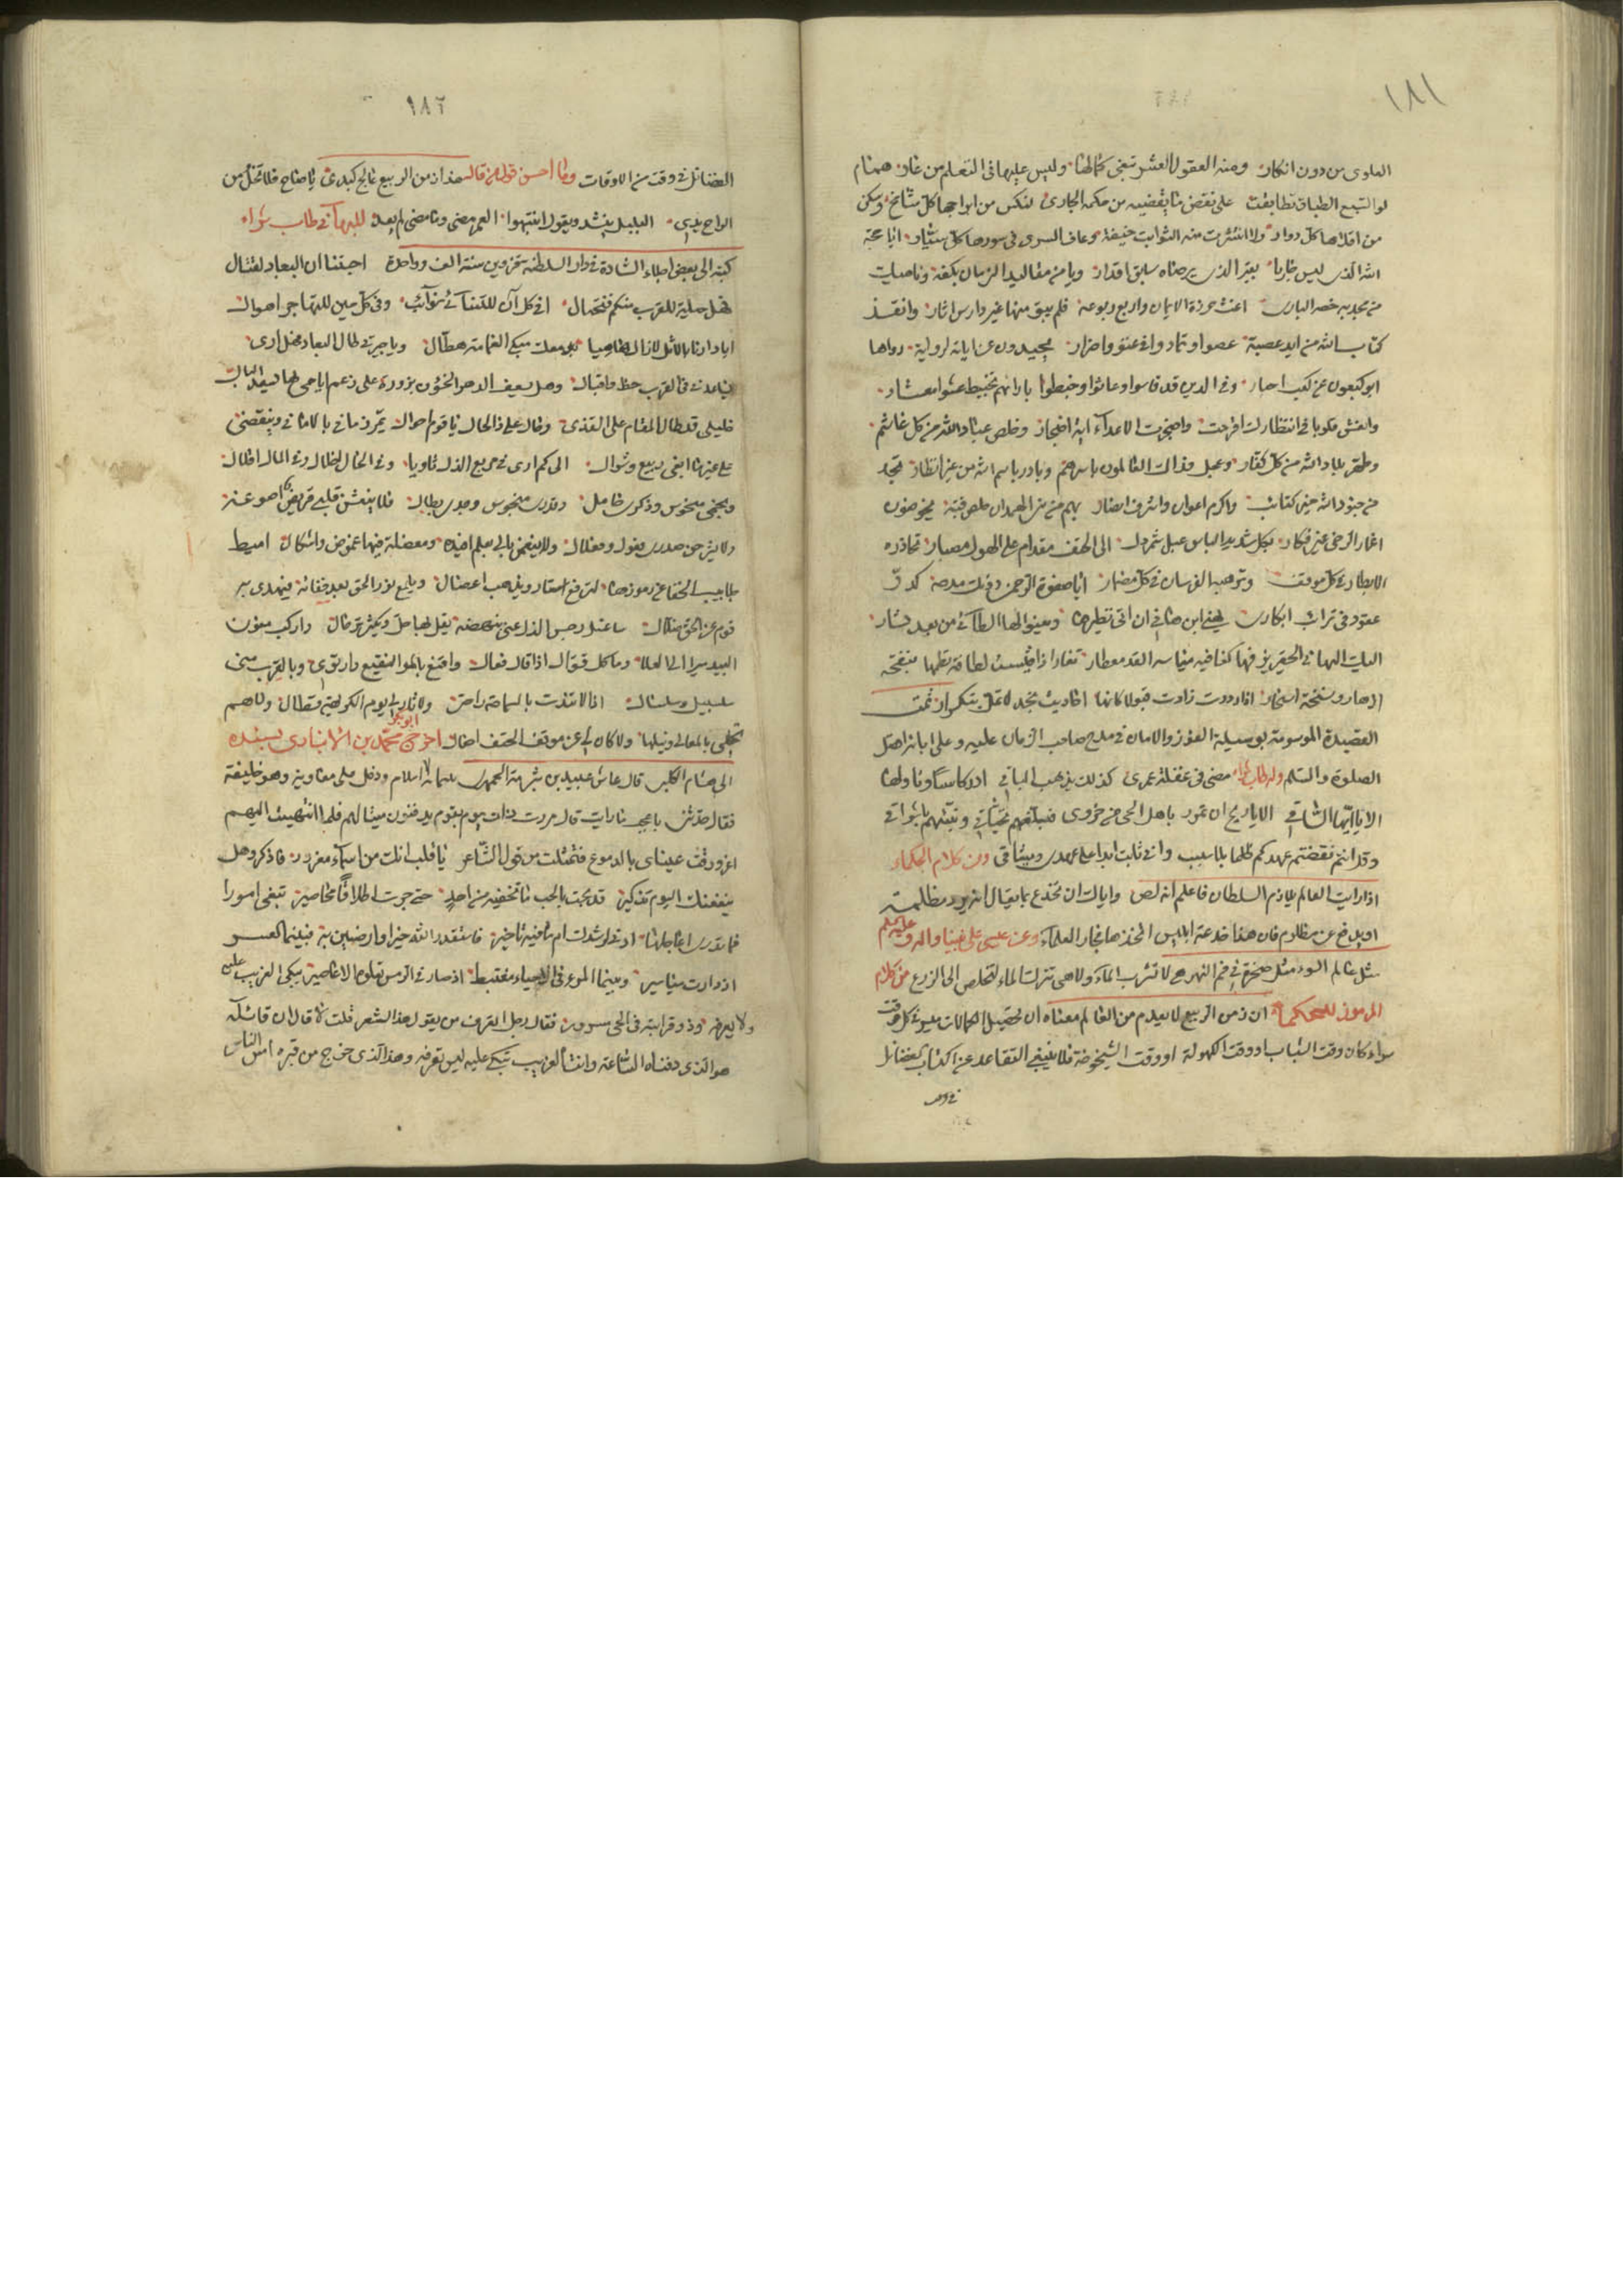 ١٨١
العلوى من دون انكار ومنه العقول العشر تبغى كمالها وليس عليها فى التعلم من عار همام
لو السبع الطباق تطابقت على نقض ما يقضيه من حكمه الجارى لنكس من ابراجها كل شامخ وسكن
من افلاكها كل دوار ولا انتثرت منه الثوابت خيفة وعاف السرى فى سورها كل سيار ايا حجة
الله الذى ليس جاريا بغير الذى يرضاه سابق اقدار ويا من مقاليد الزمان بكفه وناهيك
من مجد به خصه البارى اغث حوزة الايمان واعمر ربوعه فلم يبق منها غير دارس اثار وانقذ
كتاب الله من يد عصبة عصوا وتمادوا فى عتو واضرار يحيدون عن اياته لرواية رواها
ابو شعيون عن كعب احبار وفى الدين قد قاسوا وعاثوا وخبطوا بارائهم تخبيط عشوا معشار
وانعش قلوبا فى انتظارك اقرحت واضجرت الاعداء اية اضجار وخلص عباد الله من كل غاشم
وطهر بلاد الله من كل كفار وعجل فداك العالمون باسرهم وبادر باسم الله من غير انظار تجد
من جنود الله خير كتائب واكرم اعوان واشرف انصار بهم من بنى همدان اخلص فتية يخوضون
اغمار الوغى غير فكار بكل شديد الباس عبل شمردل الى الحتف مقدام على الهول مصبار تحاذره
الابطال فى كل موقف وترهبه الفرسان فى كل مضمار ايا صفوة الرحمن دونك مدحة كدر
عقود فى ترائب ابكار يهنى ابن هانى ان اتى بنظيرها ويعنو لها الطائى من بعد بشار
اليك البهائى الحقير يزفها كغانية مياسة القد معطار تغار اذا قيست لطافة نظمها بنفحة
ازهار ونسمة اسحار اذا رددت زادت قبولا كانها احاديث نجد لا تمل بتكرار تمت
القصيدة الموسومة بوسيلة الفوز والامان فى مدح صاحب الزمان عليه وعلى ابائه افضل
الصلوة والسلم وله طاب ثراه مضى فى غفلة عمرى كذلك يذهب الباقى ادر كاسا وناولها
الا يا ايها الساقى الا يا ريح ان تمرر باهل الحى من حزوى فبلغهم تحياتى ونبئهم باشواقى
وقد انتم نقضتم عهدكم ظلما بلا سبب وانى ثابت ابدا على عهدى وميثاقى ومن كلام الحكماء
اذا رايت العالم يلازم السلطان فاعلم انه لص واياك ان تخدع بما يقال انه يرد مظلمة
او يدفع عن مظلوم فان هذا خدعة ابليس اتخذها فجار العلماء وعن عيسى على نبينا واله وعليه السلم
مثل عالم السوء مثل صخرة فى فم النهر هى لا تشرب الماء ولا هى تترك الماء لتخلص الى الزرع من كلام
المرموز للحكماء ان زمن الربيع لا يعدم من العالم معناه ان تحصيل الكمالات ميسر فى كل وقت
سواء كان وقت الشباب او وقت الكهولة او وقت الشيخوخة فلا ينبغى التقاعد عن اكتساب الفضائل
فى وقت
١٨٢
الفضائل فى وقت من الاوقات وما احسن قول من قال هذا زمن الربيع عالج كبدى يا صاح فلا تخل من
الراح يدى البلبل ينشد ويقول انتبهوا العمر مضى وما مضى لم يعد للبهائى طاب ثراه
كتبه الى بعض اجلاء السادة فى دار السلطنه بقزوين سنة الف وواحدة احبتنا ان البعاد لقتال
فهل حيلة للقرب منكم فنحتال افى كل آن للتنائى نوائب وفى كل حين للتهاجر اهوال
ايا دارنا بالاثل لا زال هاميا بربعك مبكى الغمامة هطال ويا جيرتى طال البعاد فهل ارى
يساعدنى فى القرب حظ واقبال وهل يسعف الدهر الخؤن بزورة على رغم ايامى بها يسعد البال
خليلى قد طال المقام على القذى وحال على ذا الحال يا قوم احوال يمر زمانى بالامانى وينقضى
على غير ما ابغى ربيع وشوال الى كم ارى فى مربع الذل ثاويا وفى الحال اخلال وفى المال اقلال
ونجمى منحوس وذكرى خامل وقدرى منحوس وجدى بطال فلا ينعش قلبى قريض اصوغه
ولا يشرحن صدرى فعول وفعلال ولا ينعمن بالى بعلم افيده ومعضلة فيها غموض واشكال اميط
جلابيب الخفا عن رموزها لترفع استار ويذهب اعضال ويلمع نور الحق بعد خفائه فيهدى به
قوم عن الحق ضلال ساغسل رجس الذل عنى بنهضة يقل بها حل ويكثر ترحال واركب متون
البيد سيرا الى العلا وما كل قوال اذا قال فعال واقنع بالمر النقيع واربوى وبالقرب منى
سلسبيل وسلسال اذا لا تندت بالسماحة راحتى ولا ثار لى يوم الكريهة قسطال ولا هم
قلبى بالمعالى ونيلها ولا كان لى عن موقف الحتف اجفال اخرج ابو بكر محمد بن الانبارى بسنده
الى هشام الكلبى قال عاش عبيد بن شرية الجرهمى ثلثمائة ادرك الاسلام ودخل على معاوية وهو خليفة
فقال حدثنى باعجب ما رايت قال مررت ذات يوم بقوم يدفنون ميتا لهم فلما انتهيت اليهم
اغرورقت عيناى بالدموع فتمثلت من قول الشاعر يا قلب انك من اسماء مغرور فاذكر وهل
ينفعنك اليوم تذكير قد بحت بالحب ما تخفيه من احد حتى جرت اطلاقا محاضير تبغى امورا
فما تدرى اعاجلها ادنى لرشدك ام ما فيه تاخير فاستقدر الله خيرا وارضين به فبينما العسر
اذ دارت مياسير وبينما المرء فى الاحياء مغتبط اذ صار فى الرمس تعلوه الاعاصير يبكى الغريب عليه
ولا يعرفه وذو قرابته فى الحى مسرور فقال رجل اتعرف من يقول هذا الشعر قلت لا قال ان قائله
هو الذى دفناه الساعة وانت الغريب تبكى عليه ليس تعرفه وهذا الذى خرج من قبره امس الناس